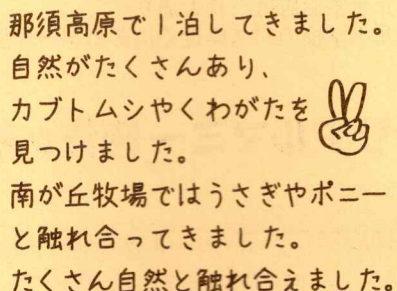 那須高原で1泊してきました。
自然がたくさんあり、
カブトムシやくわがたを
見つけました。
南が丘牧場ではうさぎやポニー
と触れ合ってきました。
たくさん自然と触れ合えました。